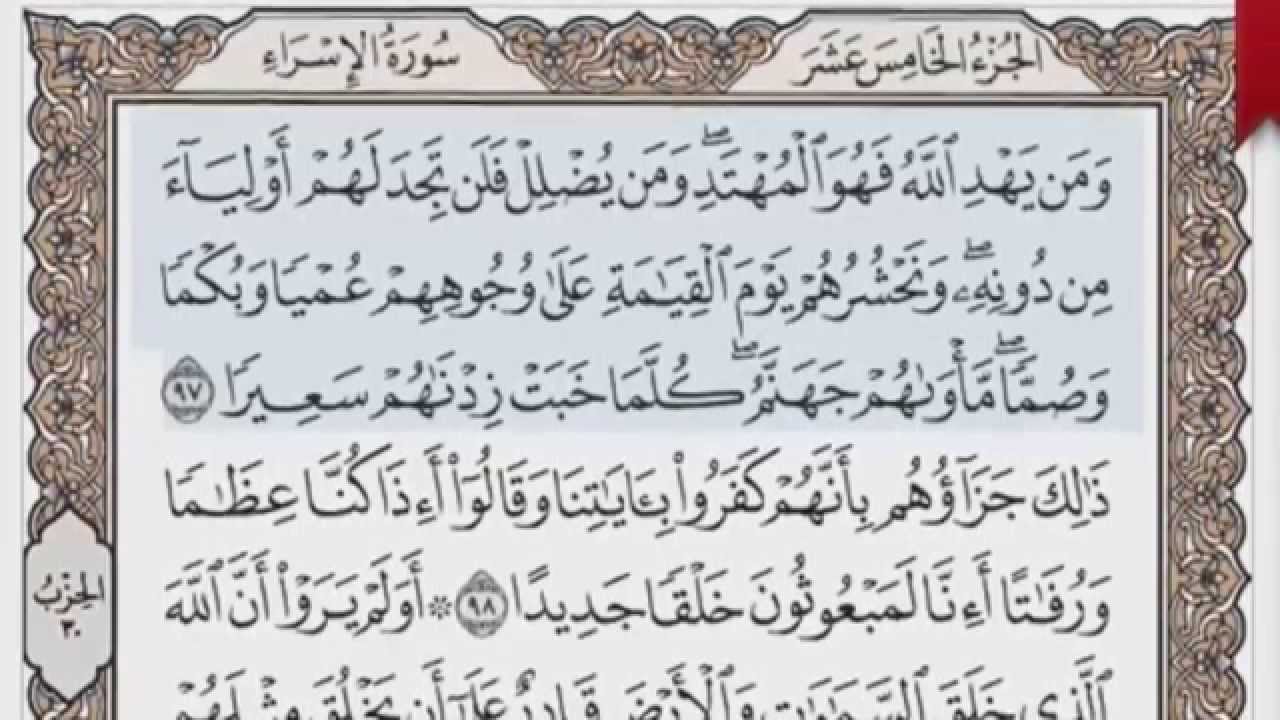 الجُزْءُ الخَامِسَ عَشَرَ
سُورَةُ الإِسْرَاءِ
وَمَن يَهْدِ ٱللَّهُ فَهُوَ ٱلْمُهْتَدِۖ وَمَن يُضْلِلْ فَلَن تَجِدَ لَهُمْ أَوْلِيَآءَ
مِن دُونِهِۦۖ وَنَحْشُرُهُمْ يَوْمَ ٱلْقِيَٰمَةِ عَلَىٰ وُجُوهِهِمْ عُمْيًا وَبُكْمًا
وَصُمًّاۖ مَّأْوَىٰهُمْ جَهَنَّمُۖ كُلَّمَا خَبَتْ زِدْنَٰهُمْ سَعِيرًا ٩٧
ذَٰلِكَ جَزَآؤُهُم بِأَنَّهُمْ كَفَرُوا۟ بِـَٔايَٰتِنَا وَقَالُوٓا۟ أَءِذَا كُنَّا عِظَٰمًا
وَرُفَٰتًا أَءِنَّا لَمَبْعُوثُونَ خَلْقًا جَدِيدًا ٩٨ ۞ أَوَلَمْ يَرَوْا۟ أَنَّ ٱللَّهَ
ٱلَّذِى خَلَقَ ٱلسَّمَٰوَٰتِ وَٱلْأَرْضَ قَادِرٌ عَلَىٰٓ أَن يَخْلُقَ مِثْلَهُمْ
الحِزْبُ
٣٠